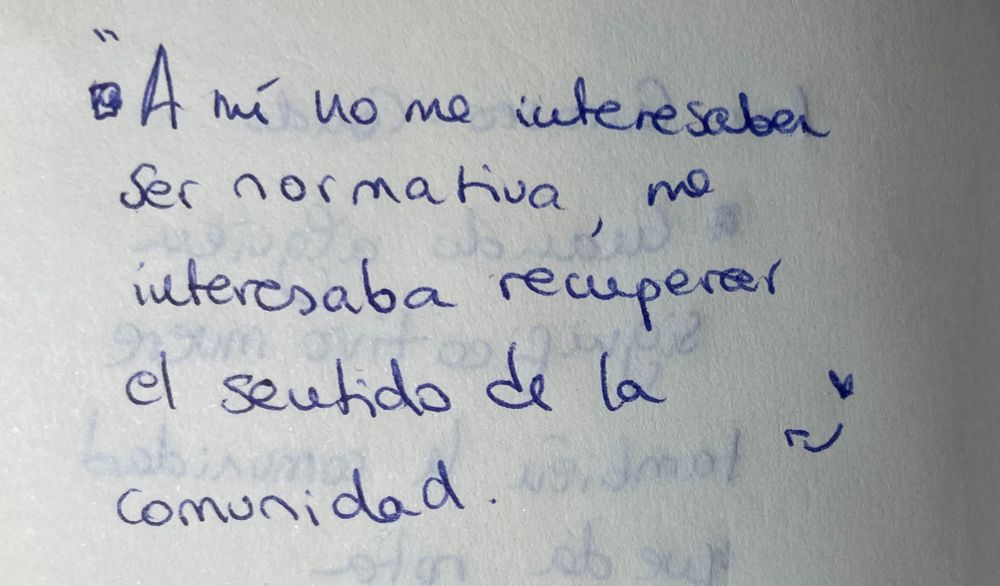 "A mí no me interesaba
ser normativa, me
interesaba recuperar
el sentido de la
comunidad.